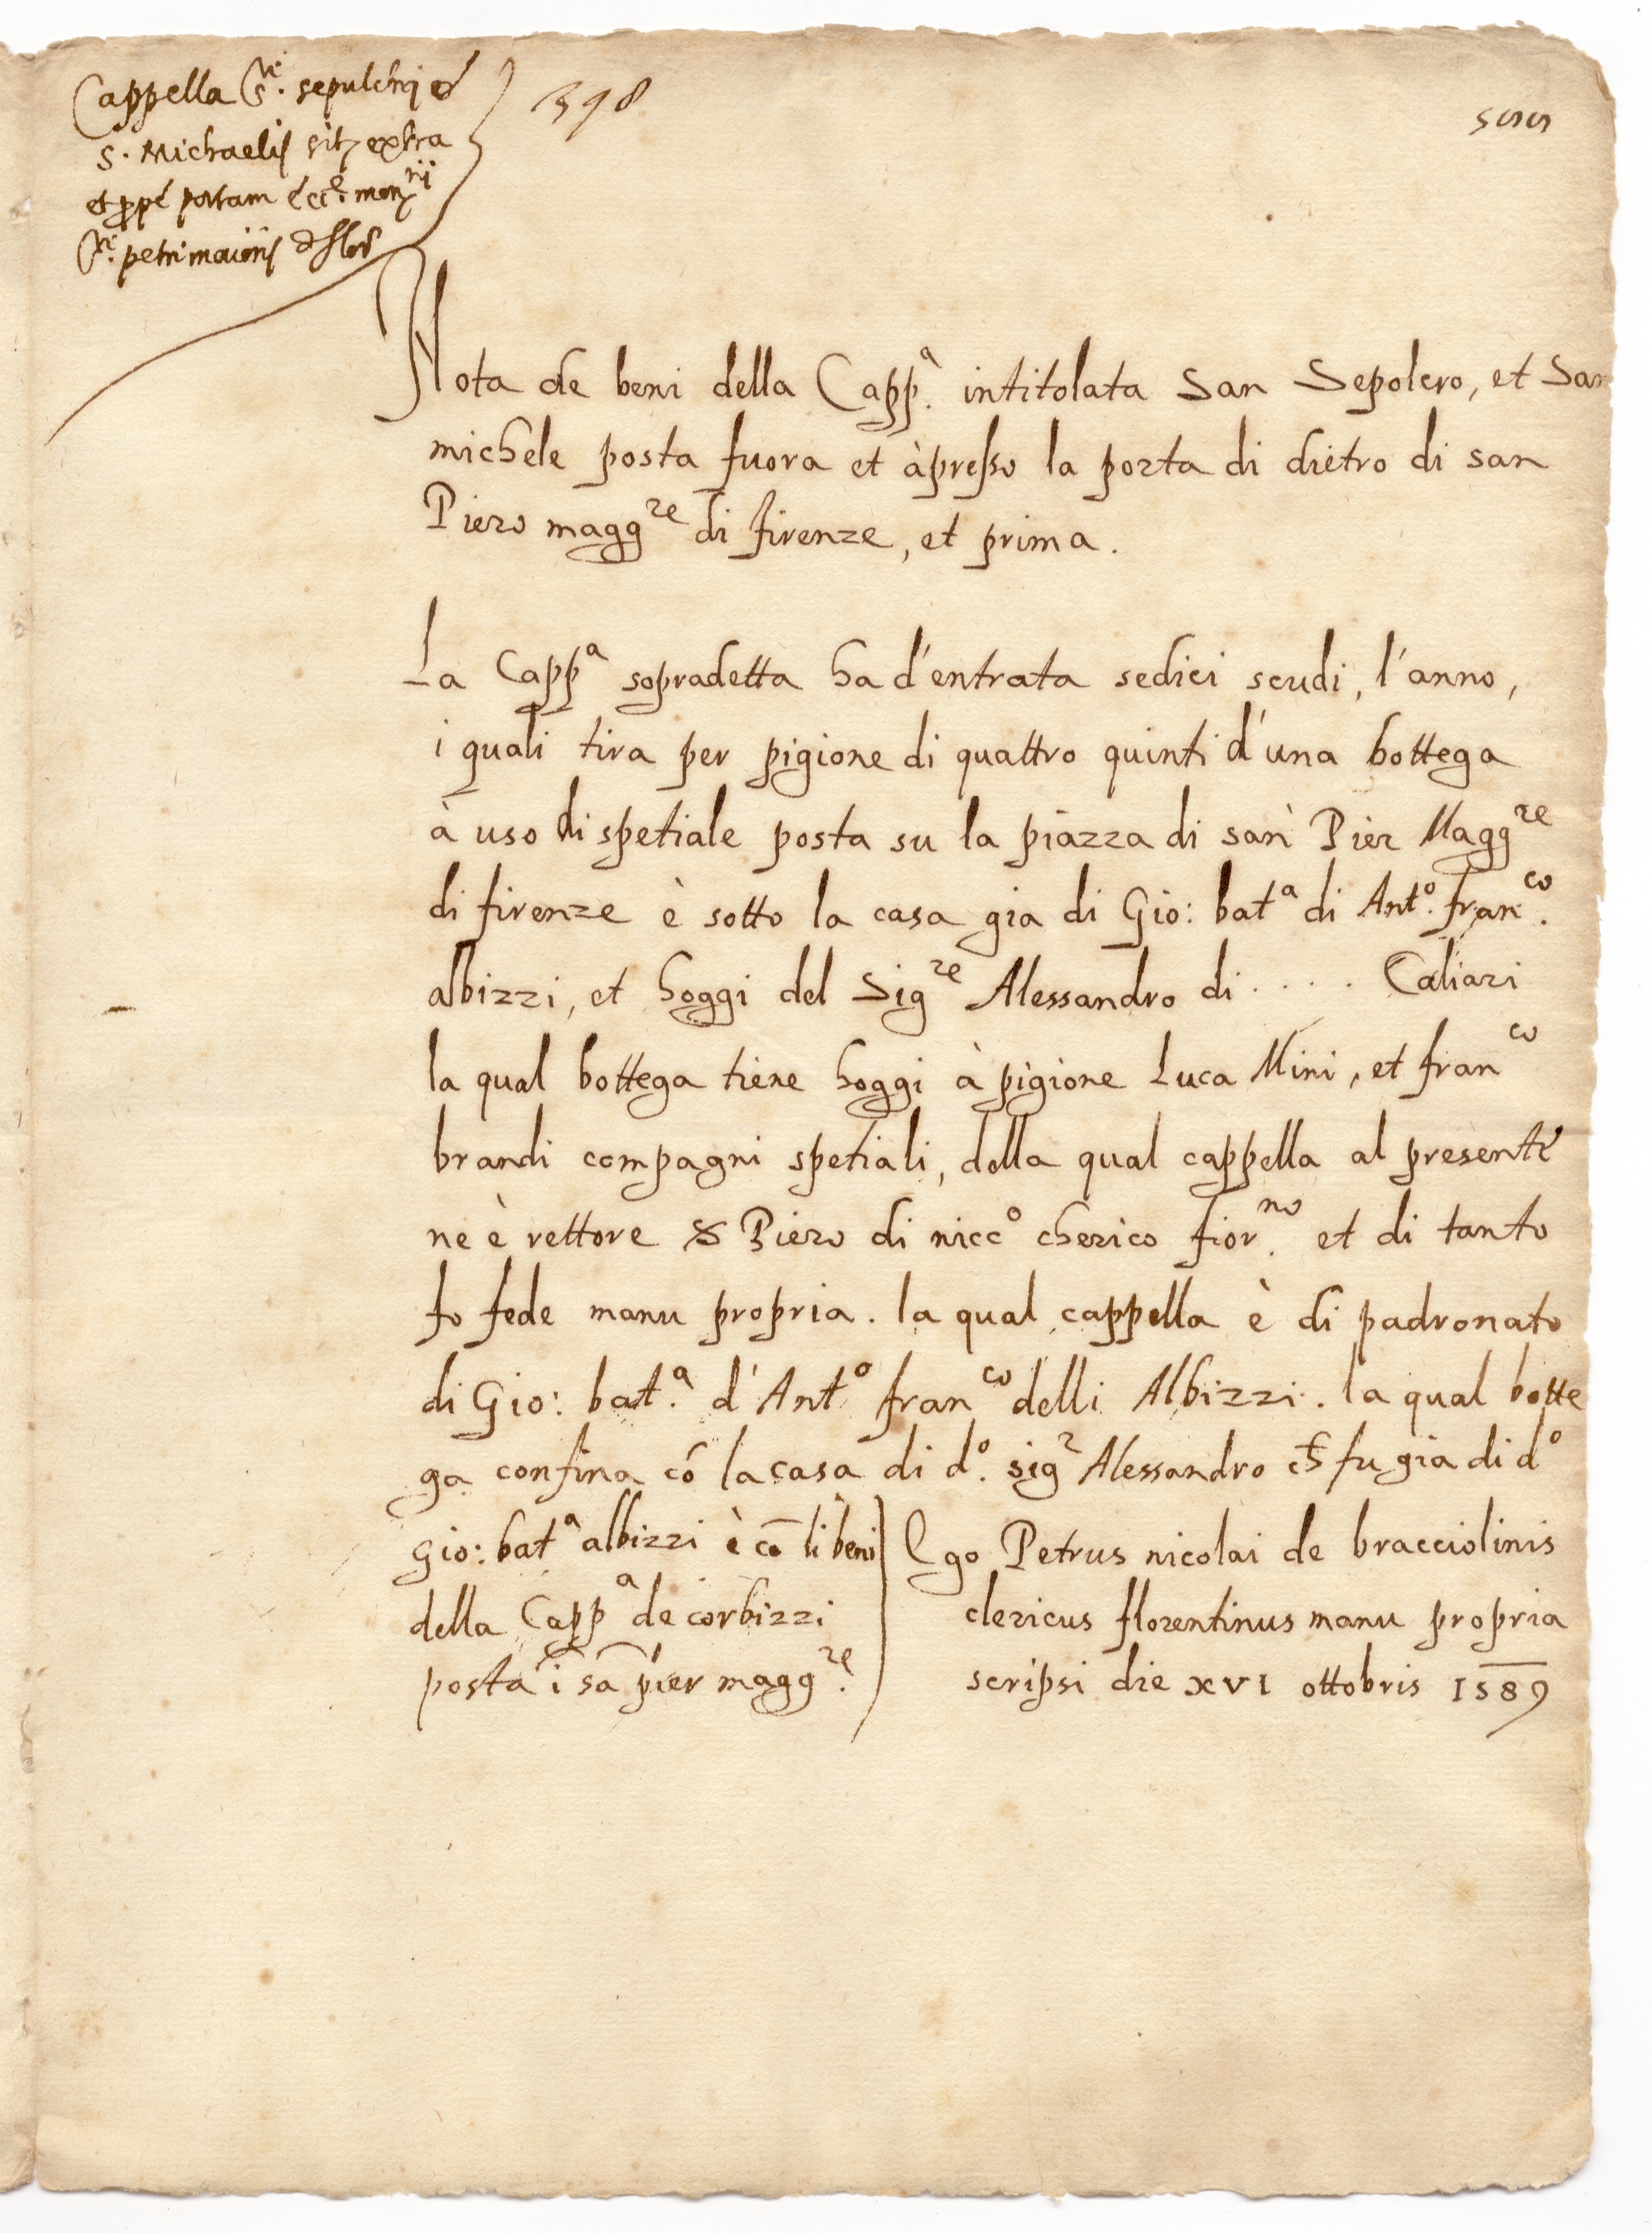 Cappella S.ti sepulchrj et
S. Michaelis sitę extra
et prope portam eccl.e monrij
S.ti petri maioris de flor
398
Nota de beni della Capp.a intitolata San Sepolcro, et San
michele posta fuora et àpresso la porta di dietro di san
Piero maggre di firenze, et prima.
La Cappa sopradetta ha d'entrata sedici scudi, l'anno,
i quali tira per pigione di quattro quinti d'una bottega
à uso di spetiale posta su la piazza di san Pier Maggre
di firenze è sotto la casa gia di Gio: bata di Anto. franco.
albizzi, et hoggi del Sigre Alessandro di . . . . Caliari
la qual bottega tiene hoggi à pigione Luca Mini, et franco
brandi compagni spetiali, della qual cappella al presente
ne è rettore Piero di nicco cherico fiorno. et di tanto
fo fede manu propria. la qual cappella è di padronato
di Gio: bat.a d'Anto franco delli Albizzi. la qual botte
ga confina cō la casa di do. sigr Alessandro ch fu gia di do
Gio: bata albizzi è cō li beni
della Cappa de corbizzi
posta ī sā pier maggre.
Ego Petrus nicolai de bracciolinis
clericus florentinus manu propria
scripsi die XVI ottobris 1589